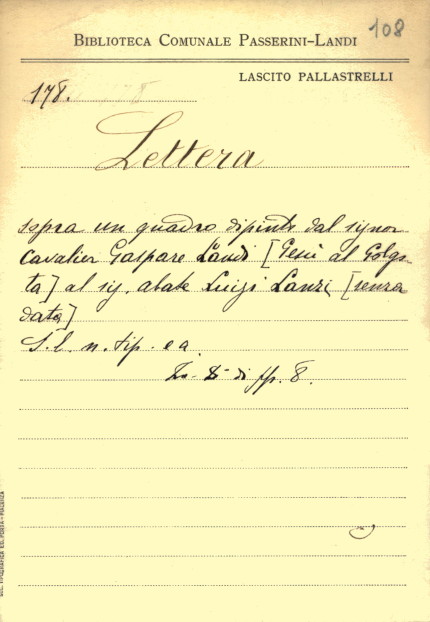 108
BIBLIOTECA COMUNALE PASSERINI-LANDI
LASCITO PALLASTRELLI
178.
Lettera
sopra un quadro dipinto dal signor
cavalier Gaspare Landi [Gesù al Golgo-
ta] al sig. abate Luigi Lanzi [senza
data]
S. l. n. tip. e a.
In-8 di pp. 8.